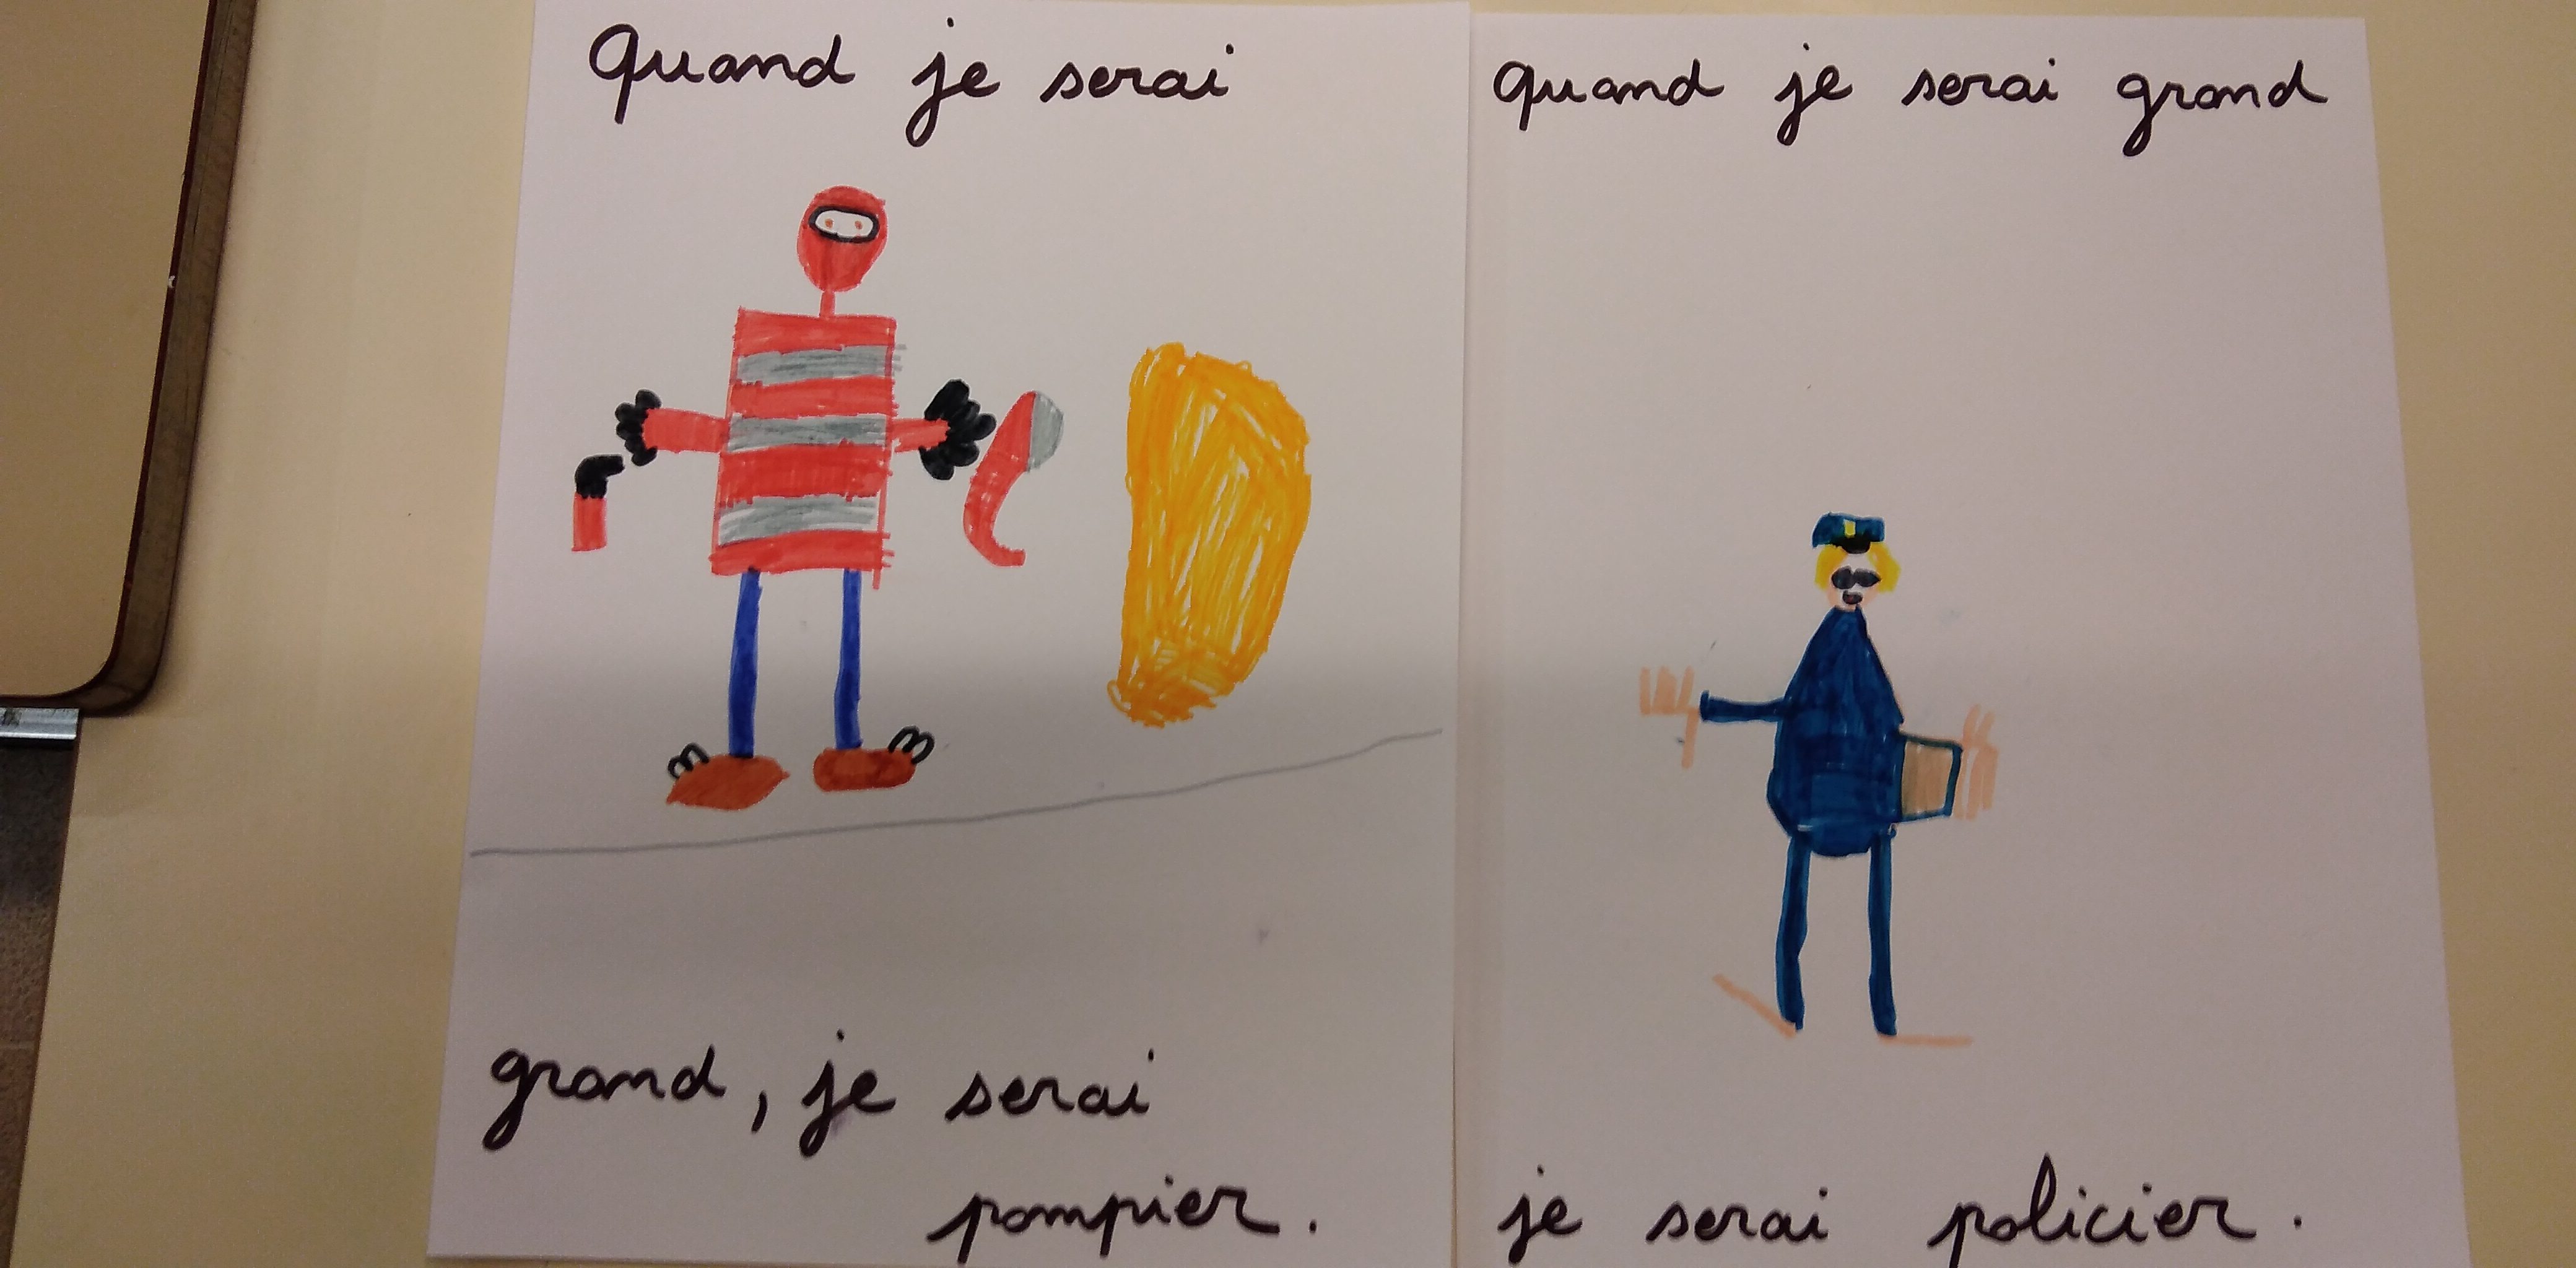 Quand je serai
grand, je serai
pompier.
quand je serai grand
je serai policier.